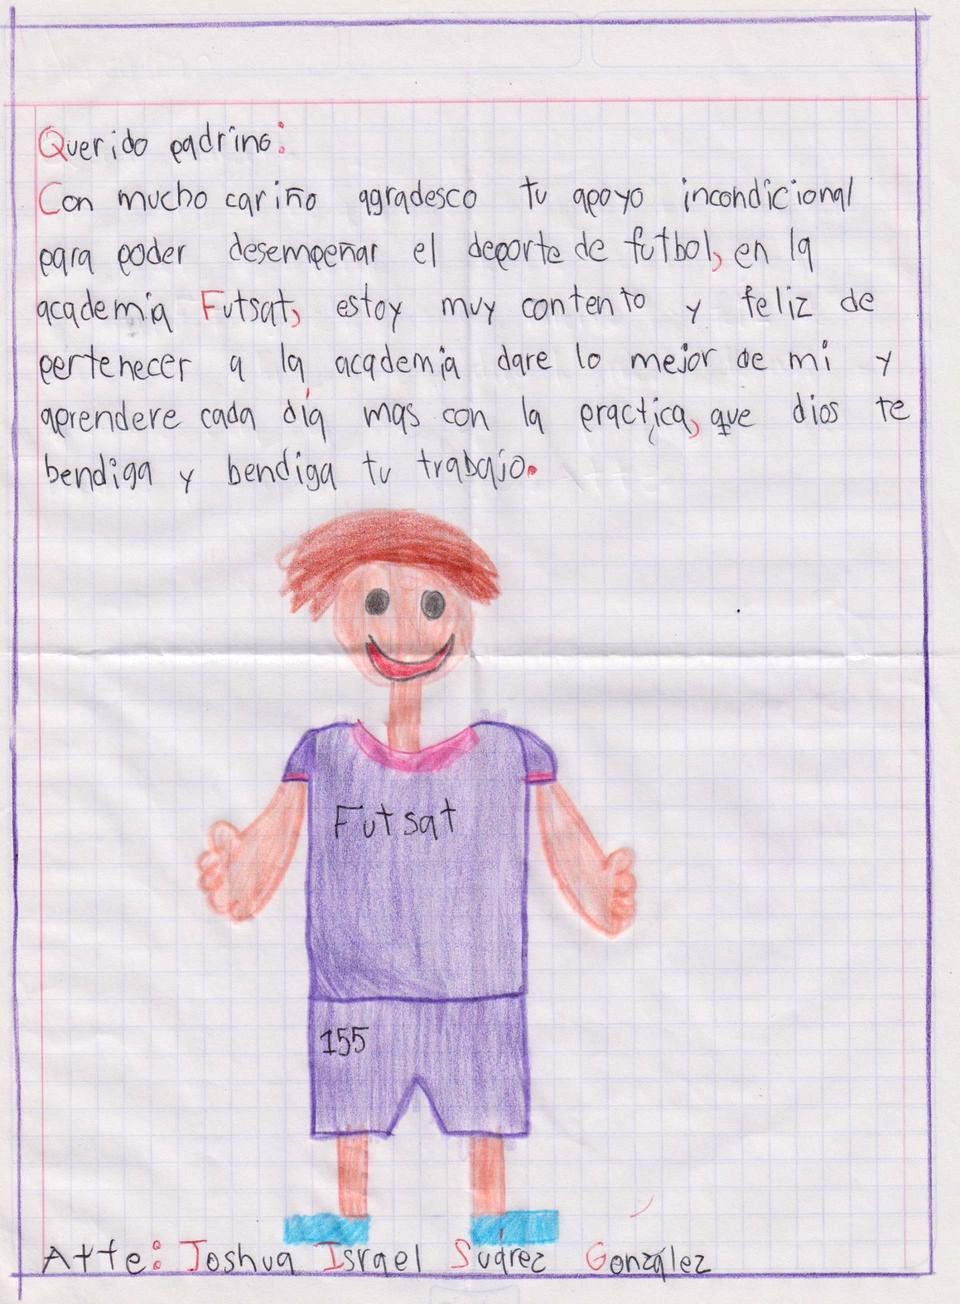 Querido padrino:
Con mucho cariño agradesco tu apoyo incondicional
para poder desempeñar el deporte de futbol, en la
academia Futsat, estoy muy contento y feliz de
pertenecer a la academia dare lo mejor de mi y
aprendere cada día mas con la practica, que dios te
bendiga y bendiga tu trabajo.
Futsat
155
Atte: Joshua Israel Suárez González